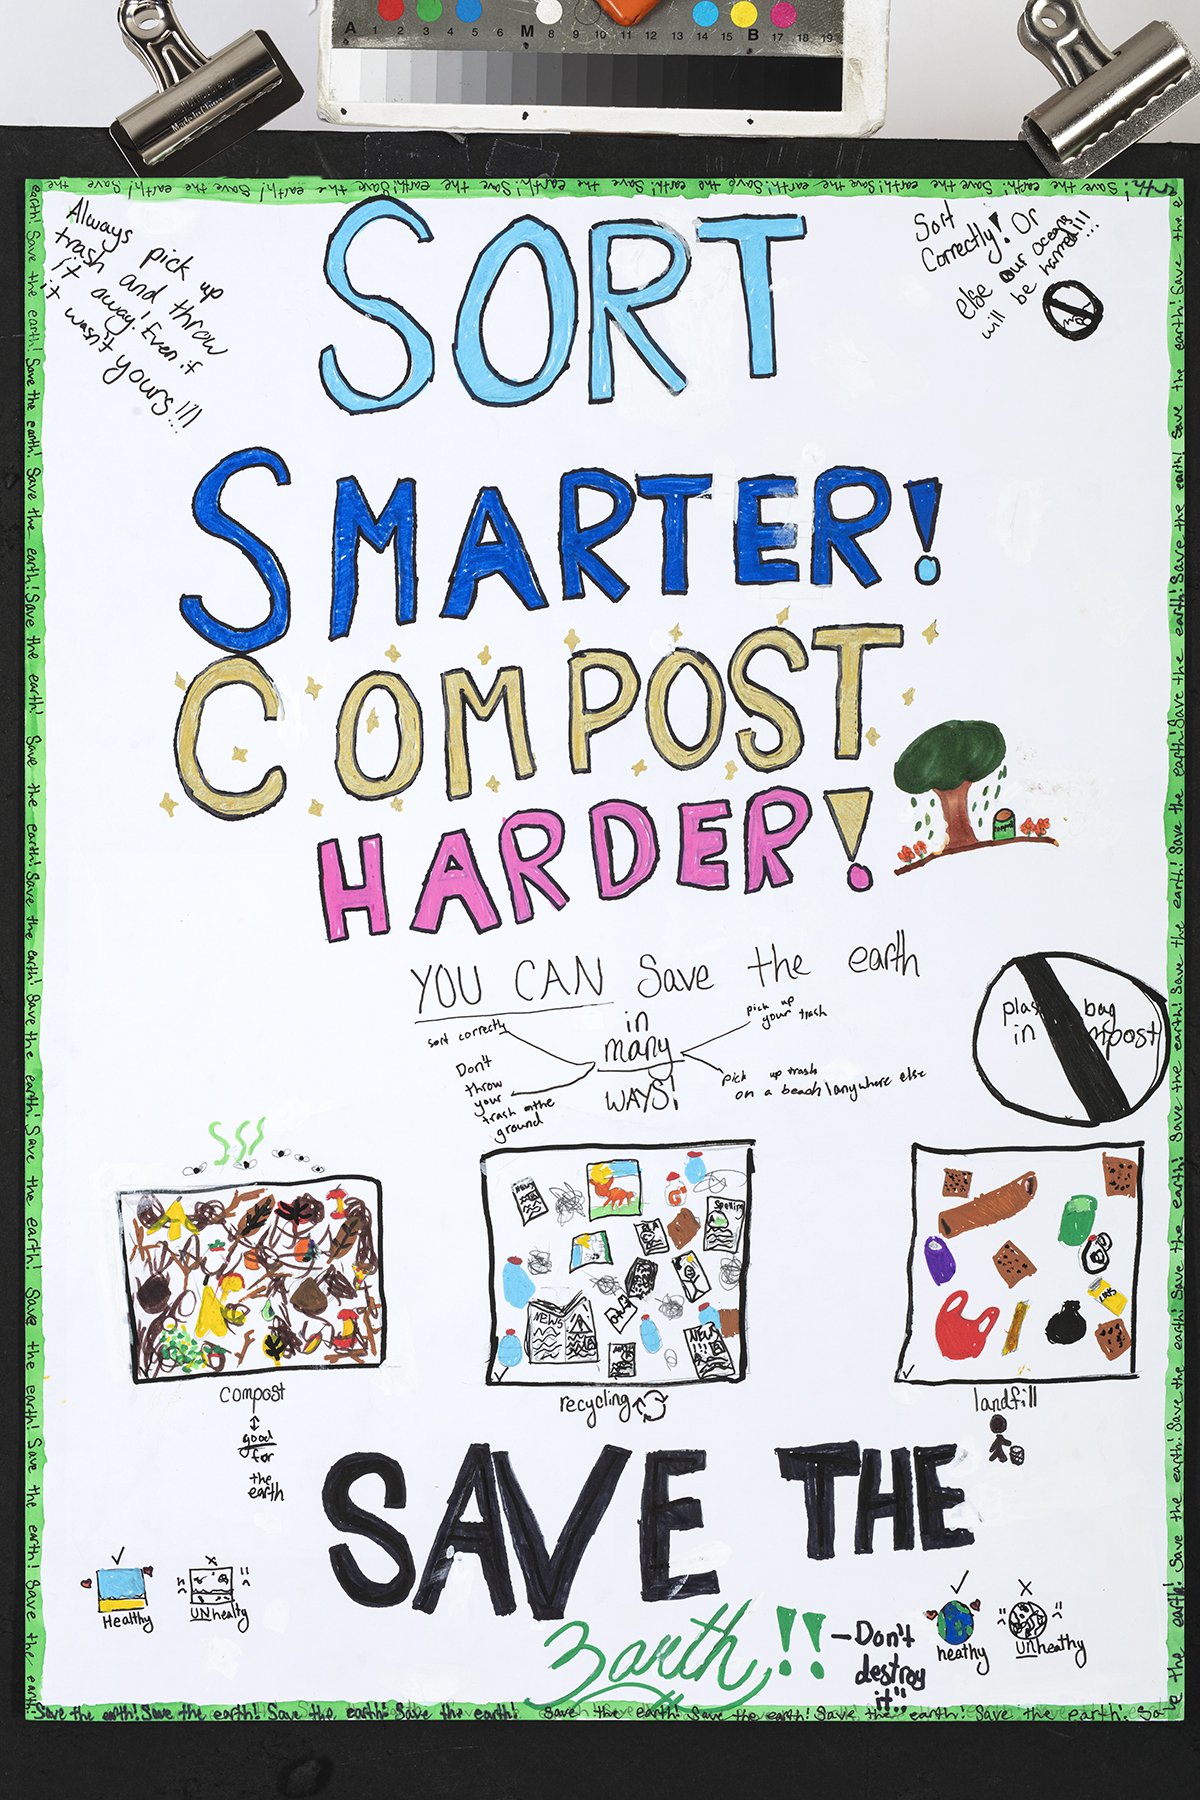 A 1 2 3 4 5 6 M 8 9 10 11 12 13 14 15 B 17 18 19
Made in China
Save the earth! Save the earth! Save the earth! Save the earth! Save the earth! Save the earth! Save the earth!
Always pick up
trash and throw
it away! Even if
it wasn't
yours!!!
Sort
Correctly! Or
else our oceans
will be harmed!!!
SORT
SMARTER!
COMPOST
HARDER!
YOU CAN save the earth
in
many
WAYS!
sort correctly
pick up
your trash
Don't
throw
your
trash on the
ground
pick up trash
on a beach/anywhere else
plastic bag
in compost
NEWS
Spelling
NEWS
NEWS
!!!
compost
good
for
the
earth
recycling
landfill
SAVE THE
Earth!!
-Don't
destroy
it!!
Healthy
UNhealty
heathy
unheathy
Save the earth! Save the earth! Save the earth! Save the earth! Save the earth! Save the earth! Save the earth! Save the earth! Sa